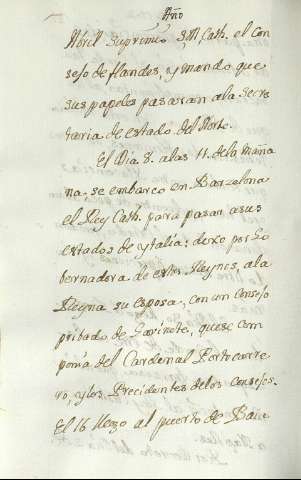 Año
Abrill suprimio S.M. Cath. el con
sejo de flandes, y mando que
sus papeles pasaran ala secre
taria de estado del Norte.
El Dia 8. alas 11. dela maña
na se embarco en Barzelona
el Rey Cath. para pasar asus
estados de ytalia: dexo por Go
bernadora de estos Reynos, ala
Reyna su esposa, con un Consejo
pribado de Gavinete, que se com
ponia del Cardenal Portocarre
ro, y los Precidentes delos consejos.
El 16 llego al puerto de Baia